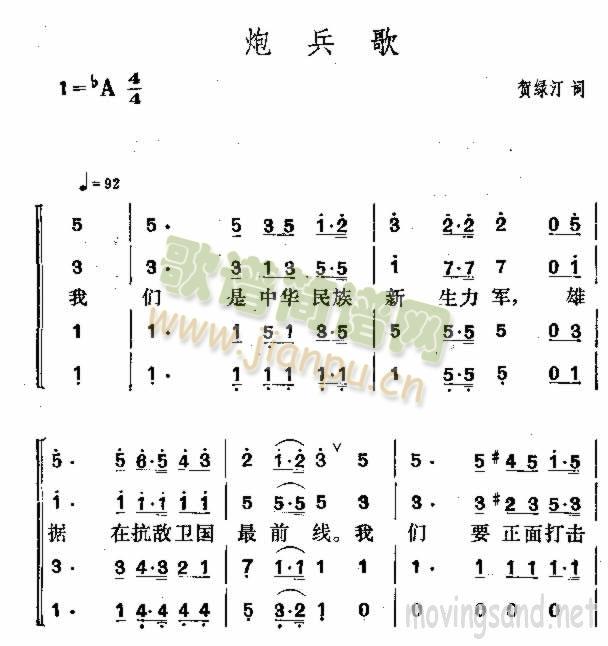 炮兵歌
1=♭A 4/4
贺绿汀 词
♩=92
5 | 5· 5 3 5 1·2 | 3 2·2 2 0 5
3 | 3· 3 1 3 5·5 | 1 7·7 7 0 1
我 们 是中华民族 新 生力军， 雄
1 | 1· 1 5 1 3·5 | 5 5·5 5 0 3
1 | 1· 1 1 1 1·1 | 1 5·5 5 0 1
5· 5 6·5 4 3 | 2 1·2 3 ∨ 5 | 5· 5 #4 5 1·5
1· 1 1·1 1 1 | 5 5·5 5 3 | 3· 3 #2 3 5·3
据 在抗敌卫国 最前线。我 们 要正面打击
3· 3 4·3 2 1 | 7 1·1 1 1 | 1· 1 1 1 1·1
1· 1 4·4 4 4 | 5 3·2 1 0 | 0 0 0 0
歌谱简谱网
www.jianpu.cn
movingsand.net